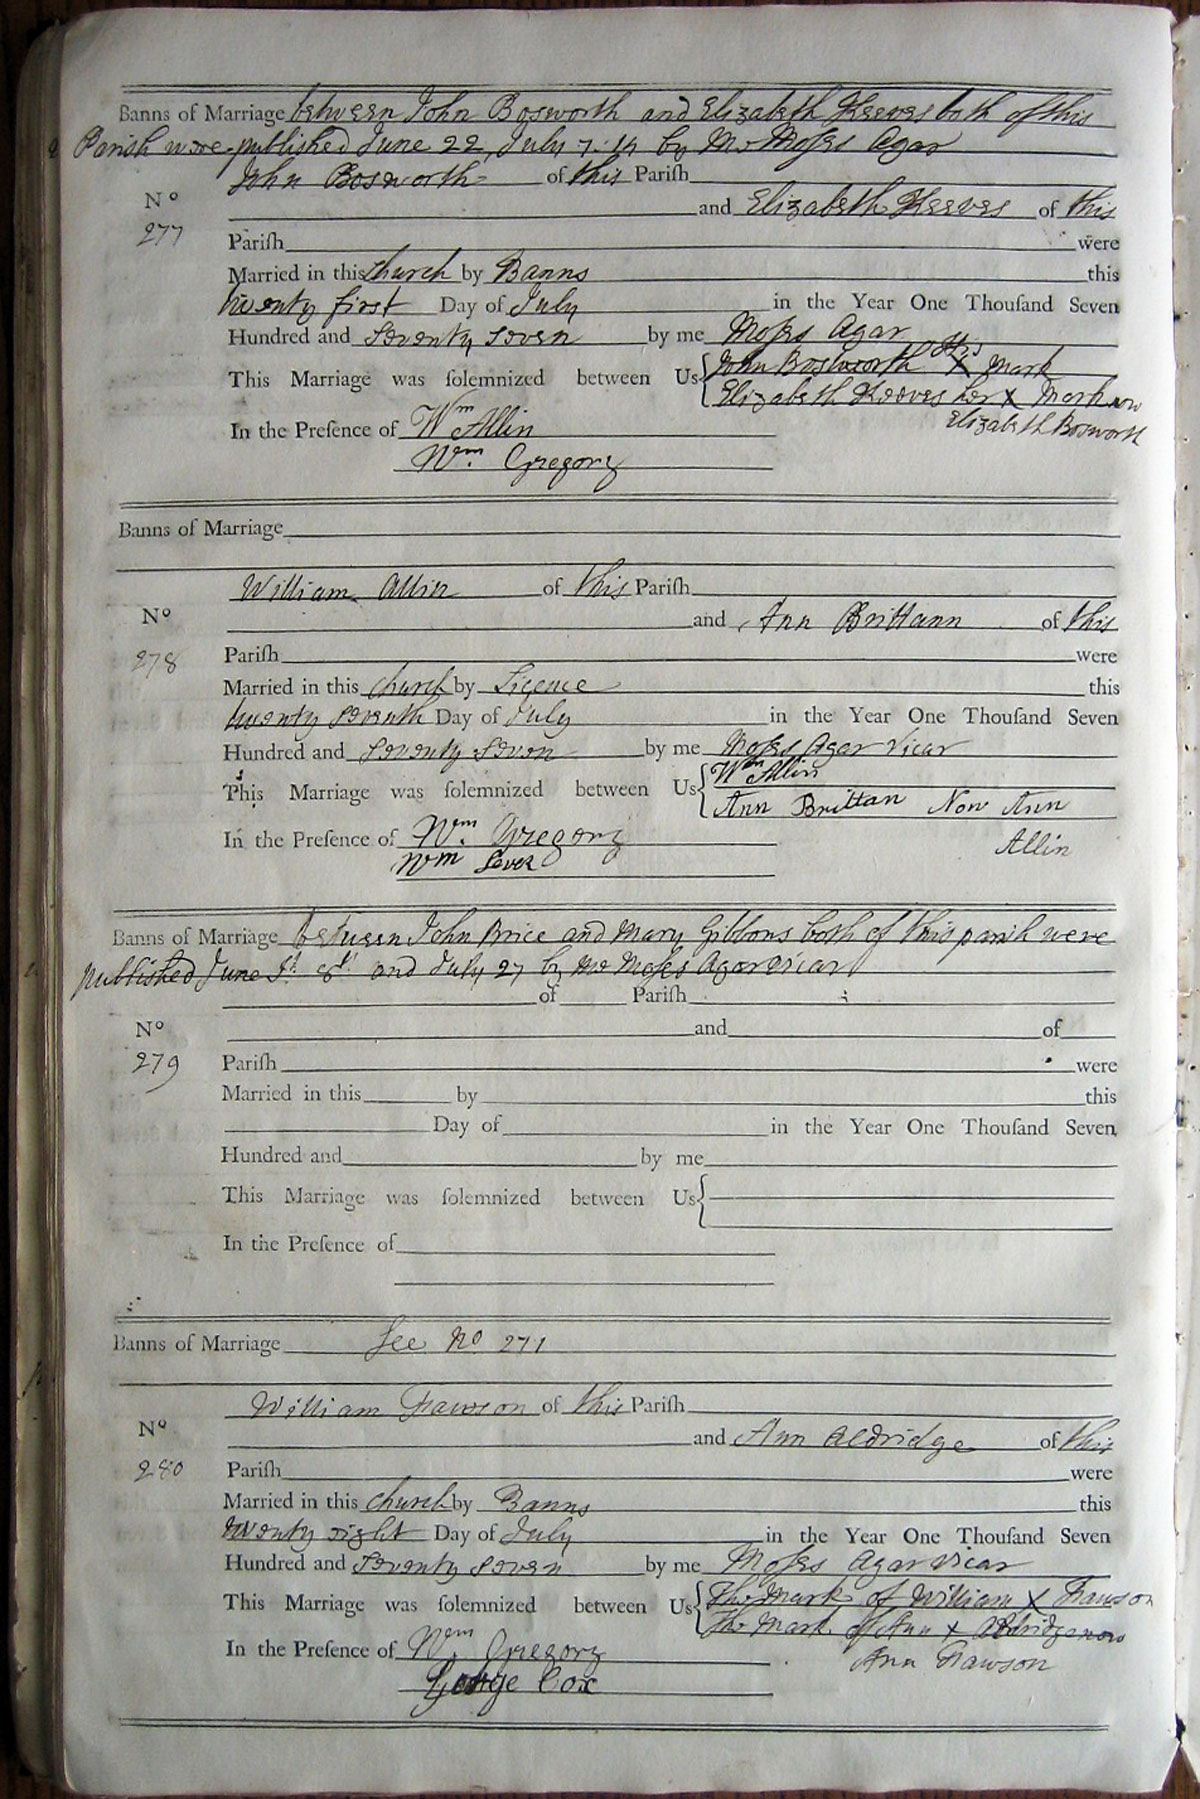 Banns of Marriage between John Bosworth and Elizabeth Keeves both of this
Parish were published June 22, July 7. 14 by Mr Moſes Agar
John Bosworth of this Parish
No
and Elizabeth Keeves of this
277
Pariſh were
Married in this Church by Banns this
twenty first Day of July in the Year One Thouſand Seven
Hundred and Seventy Seven by me Moſes Agar
This Marriage was ſolemnized between Us John Bosworth His X Mark
Elizabeth Keeves her X Mark now
Elizabeth Bosworth
In the Preſence of Wm Allin
Wm. Gregory
Banns of Marriage
William Allin of this Pariſh
No
and Ann Brittann of this
278
Pariſh were
Married in this church by Licence this
twenty Seventh Day of July in the Year One Thouſand Seven
Hundred and Seventy Seven by me Moſes Agar Vicar
This Marriage was ſolemnized between Us Wm Allin
Ann Brittan Now Ann
Allin
In the Preſence of Wm. Gregory
Wm Lever
Banns of Marriage between John Brice and Mary Gibbons both of this parish were
published June and July 27 by Mr Moſes Agar Vicar
of Pariſh
No
and of
279
Pariſh were
Married in this by this
Day of in the Year One Thouſand Seven
Hundred and by me
This Marriage was ſolemnized between Us
In the Preſence of
Banns of Marriage See No 271
William Frawson of this Pariſh
No
and Ann Aldridge of this
280
Pariſh were
Married in this church by Banns this
twenty eight Day of July in the Year One Thouſand Seven
Hundred and Seventy Seven by me Moſes Agar Vicar
This Marriage was ſolemnized between Us The Mark of William X Frawson
The Mark of Ann X Aldridge now
Ann Frawson
In the Preſence of Wm. Gregory
George Cox